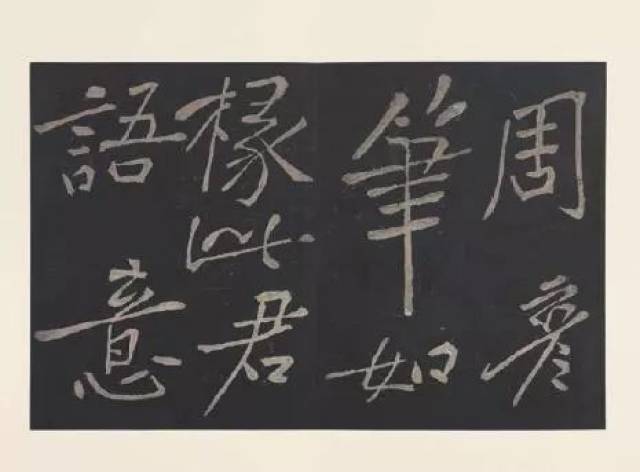 周彥
筆如
椽此君
語意